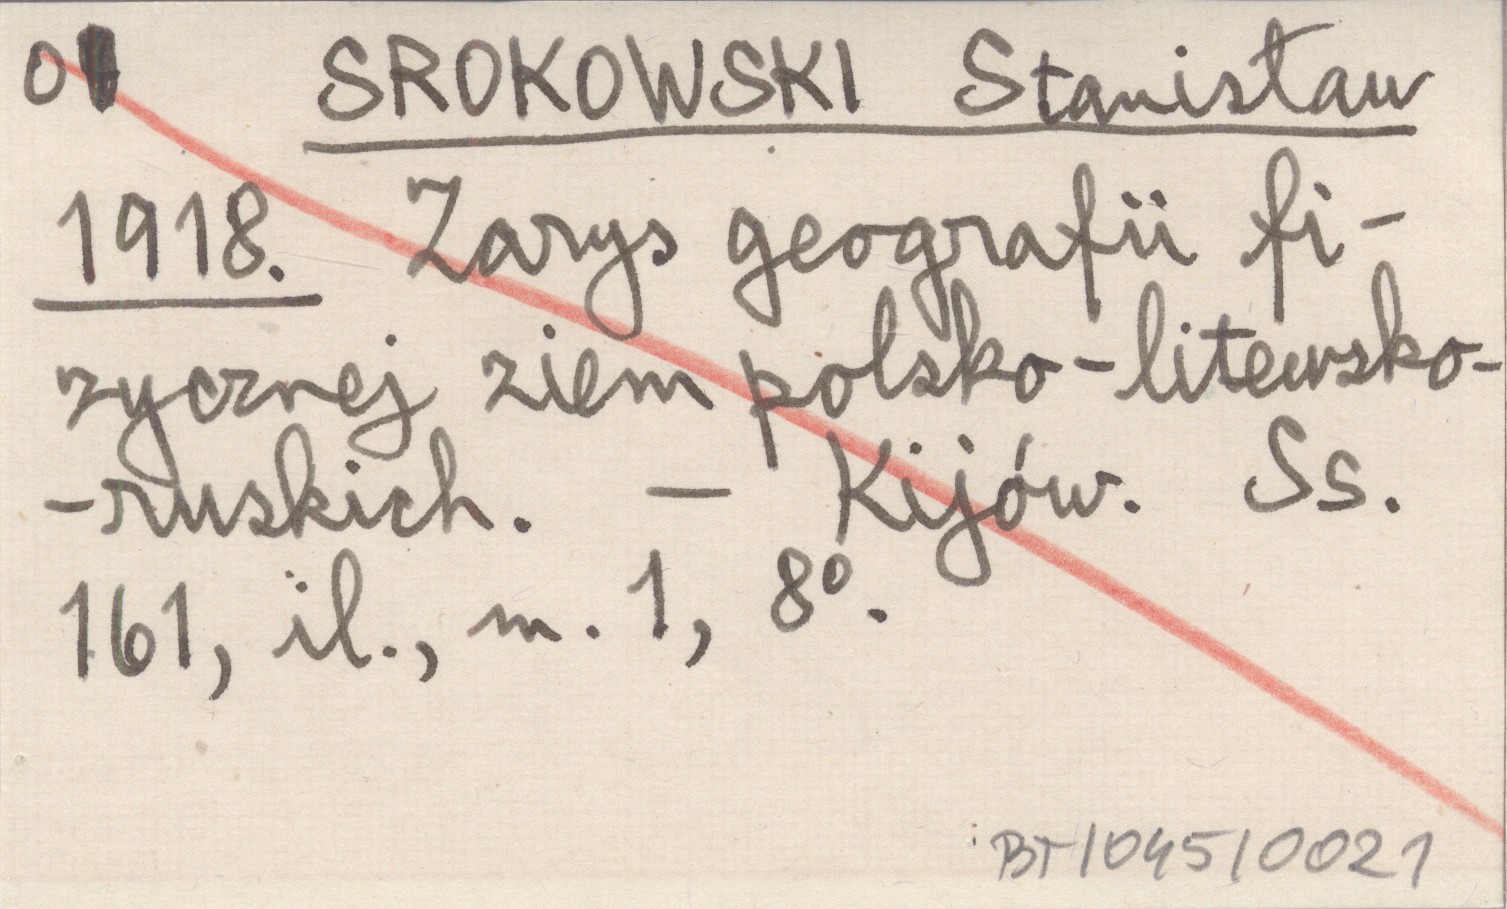 SROKOWSKI Stanisław
1918. Zarys geografii fi-
zycznej ziem polsko-litewsko-
-ruskich. — Kijów. Ss.
161, il., m. 1, 8º.
BT/045/0021